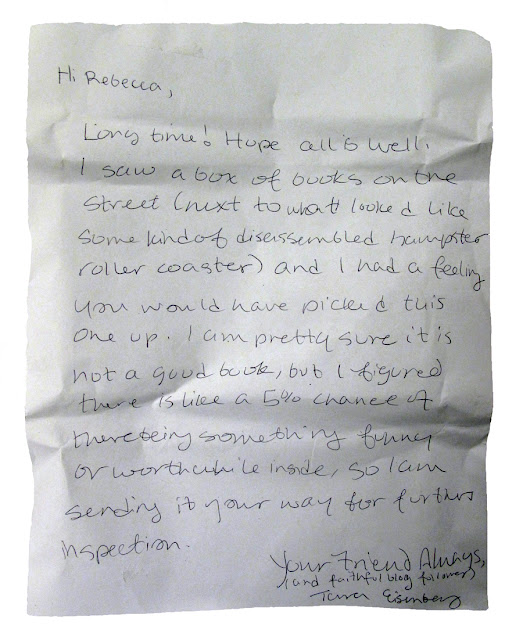 Hi Rebecca,
Long time! Hope all is well.
I saw a box of books on the
street (next to what looked like
some kind of disassembled hampster
roller coaster) and I had a feeling
you would have picked this
one up. I am pretty sure it is
not a good book, but I figured
there is like a 5% chance of
there being something funny
or worthwhile inside, so I am
sending it your way for further
inspection.
Your Friend Always,
(and faithful blog follower)
Tara Eisenberg